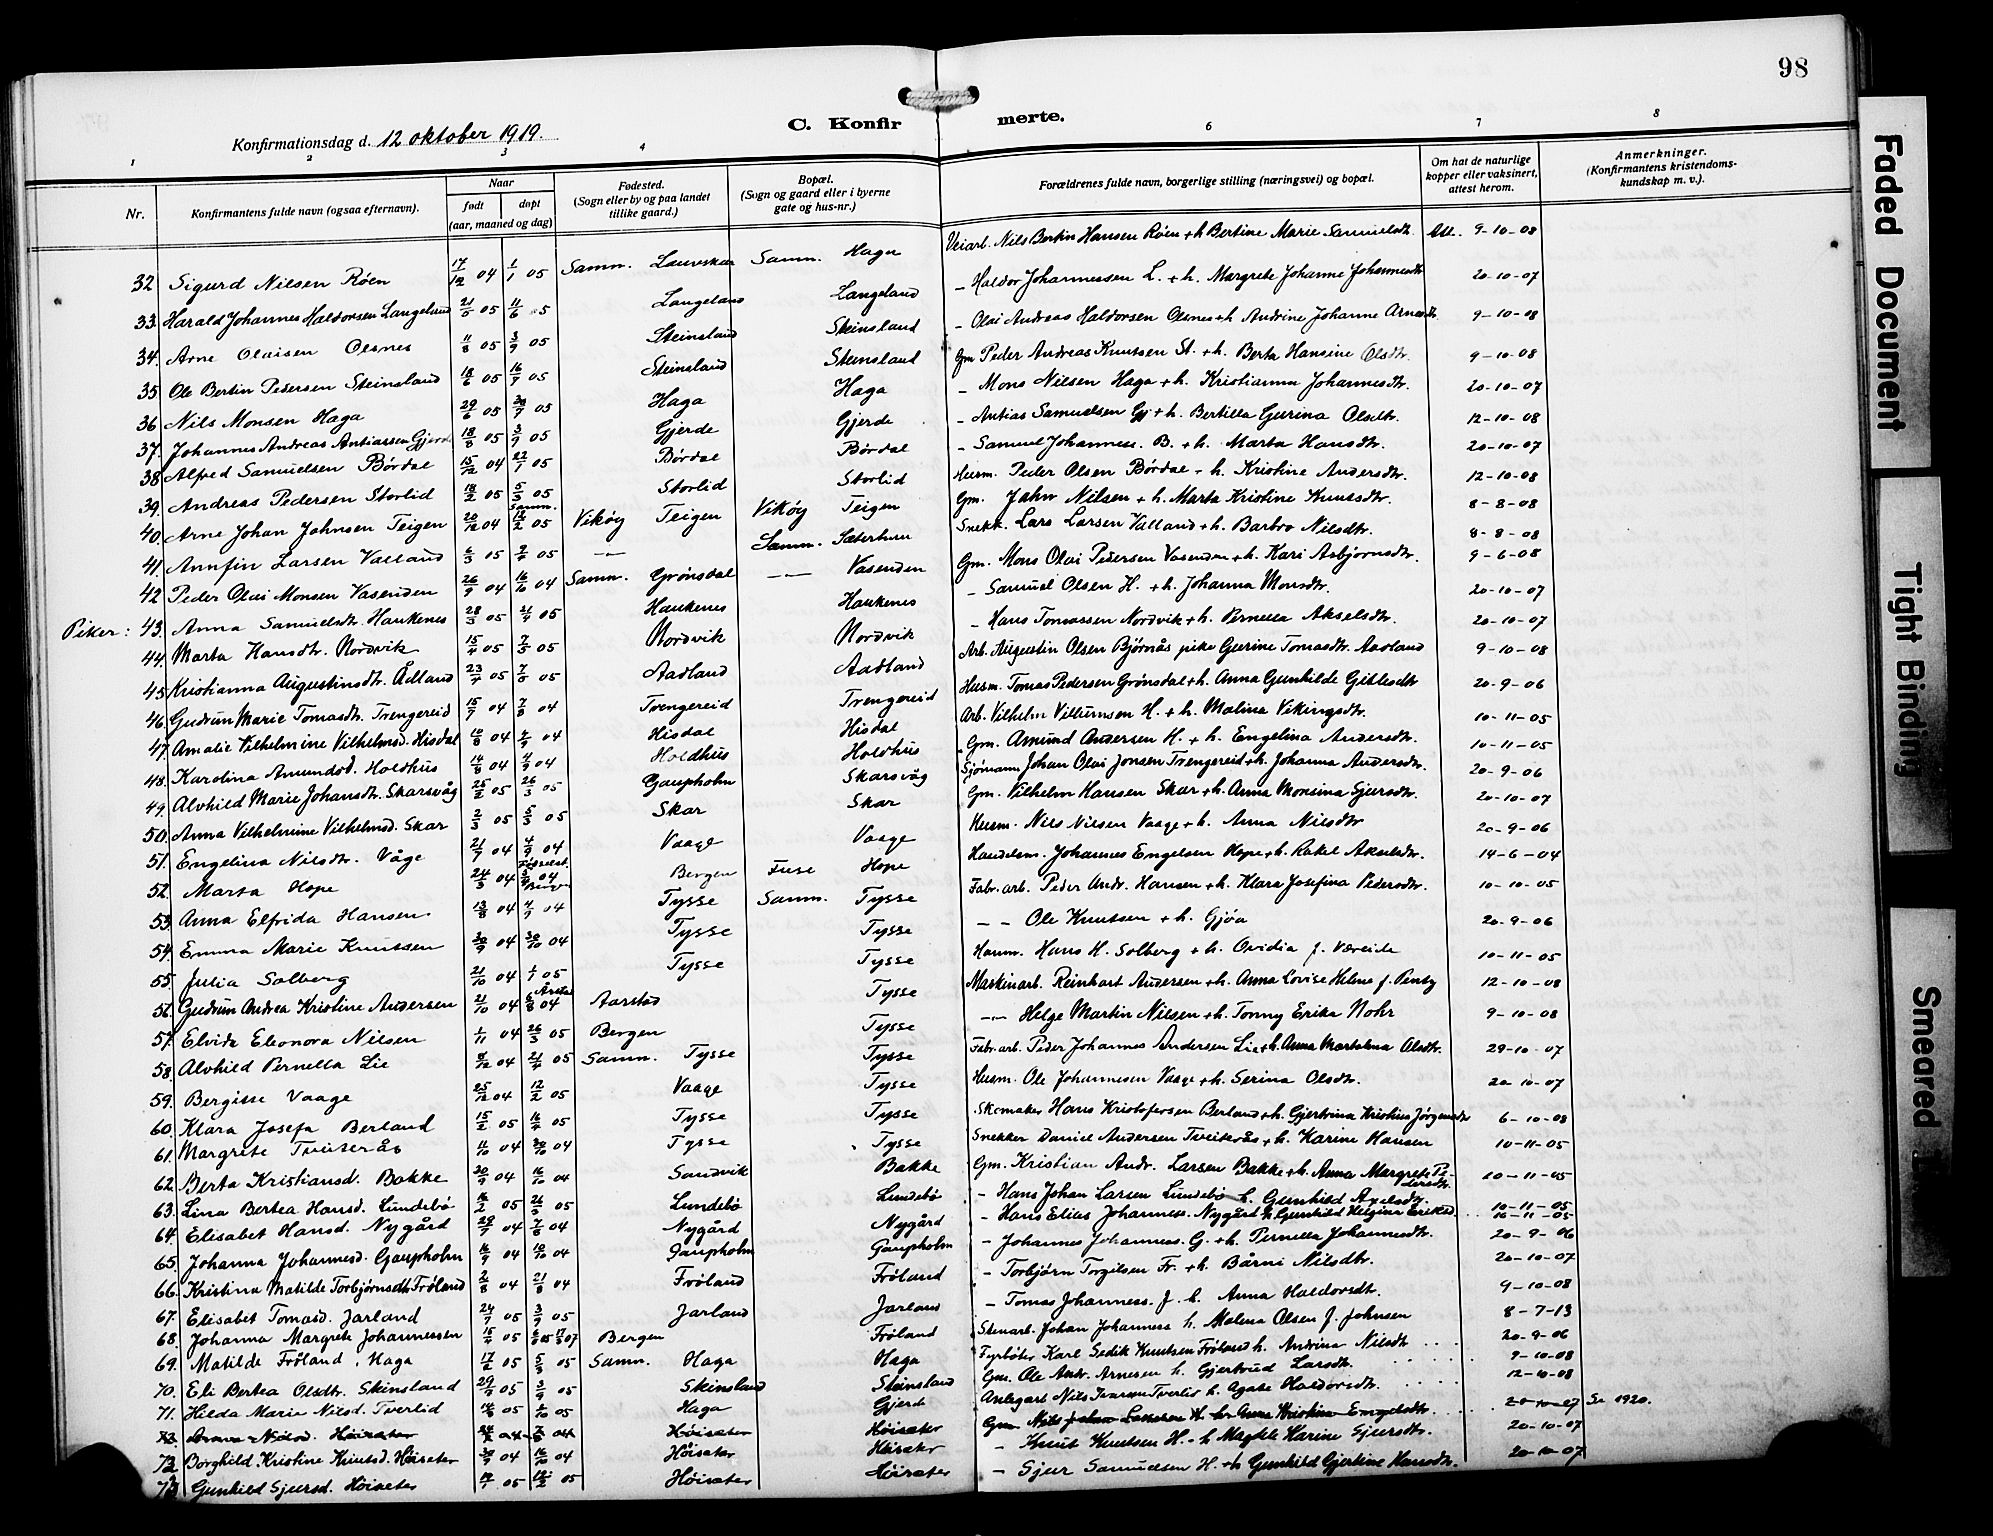 98
C. Konfirmerte.
Konfirmationsdag d. 12 oktober 1919.
1 2 3 4 6 7 8
Nr. Konfirmantens fulde navn (ogsaa efternavn). Naar født døpt (aar, maaned og dag) Fødested. (Sogn eller by og paa landet tillike gaard.) Bopæl. (Sogn og gaard eller i byerne gate og hus-nr.) Forældrenes fulde navn, borgerlige stilling (næringsvei) og bopæl. Om hat de naturlige kopper eller vaksinert, attest herom. Anmerkninger. (Konfirmantens kristendomskundskap m. v.).
32 Sigurd Nilsen Røen 17/12 04 1/1 05 Samn. Laurskar Samn. Haga Veiarb. Nils Bertin Hansen Røen + h Bertine Marie Samuelsdt. Att. 9-10-08
33. Harald Johannes Haldorsen Langeland 21/5 05 11/6 05 Langeland Langeland – Haldor Johannessen L. + h. Margrete Johanne Johannesdt 20-10-07
34. Arne Olaisen Olsnes 11/8 05 3/9 05 Steinsland Skeinsland – Olai Andreas Haldorsen Olsnes + h Andrine Johanne Arnesdt. 9-10-08
35. Ole Bertin Pedersen Steinsland 18/6 05 16/7 05 Steinsland Steinsland Gm Peder Andreas Knutsen St. + h. Berta Hansine Olsdtr. 9-10-08
36 Nils Monsen Haga 29/6 05 30/7 05 Haga Haga – Mons Nilsen Haga + h. Kristianna Johannesdtr. 20-10-07
37. Johannes Andreas Antiassen Gjerde 18/8 05 3/9 05 Gjerde Gjerde – Antias Samuelsen Gj + h. Bertilla Gurina Olsdtr. 12-10-08
38 Alfred Samuelsen Børdal 15/12 04 22/1 05 Børdal Børdal – Samuel Johanness. B. + h. Marta Hansdtr. 20-10-07
39. Andreas Pedersen Storlid 18/2 05 5/3 05 Storlid Storlid Husm. Peder Olsen Børdal - h. Kristine Andersdtr. 12-10-08
40. Arne Johan Jahnsen Teigen 20/12 04 Samn. 12/2 05 Vikøy Teigen Vikøy Teigen Gm. Jahn Nilsen + h. Marta Kristine Knutsdtr. 8-8-08
41. Annfin Larsen Valland 6/3 05 05 –"– Samn. Sæterhun Snekk. Lars Larsen Valland + h. Barbro Nilsdtr. 8-8-08
42 Peder Olai Monsen Vasenden 26/9 04 16/10 04 Samn. Grønsdal –"– Vasenden Gm. Mons Olai Pedersen Vasenden + h. Kari Asbjørnsdtr. 9-6-08
Piker: 43. Anna Samuelsdt. Haukenes 28/3 05 21/4 05 Haukenes Haukenes – Samuel Olsen H. + h. Johanna Monsdtr. 20-10-07
44. Marta Hansdtr. Nordvik 15/4 05 7/5 05 Nordvik Nordvik – Hans Tomassen Nordvik + h. Pernella Akselsdtr. 20-10-07
45. Kristianna Augustinsdtr. Ådland 23/4 05 7/5 05 Aadland Aadland Arb. Augustin Olsen Bjørnås pike Gurine Tomasdtr. Aadland 9-10-08
46. Gudrun Marie Tomasdtr. Trengereid 15/7 04 7/8 04 Trengereid Trengereid Husm. Tomas Pedersen Grønsdal + h. Anna Gunhilde Gitlesdtr 20-9-06
47. Amalie Vilhelmine Vilhelmsd. Hisdal 10/8 04 4/9 04 Hisdal Hisdal Arb. Vilhelm Villumsen H. + h. Malina Vikingsdtr. 10-11-05
48. Karolina Amundsd. Holdhus 14/8 04 4/9 04 Holdhus Holdhus Gm. Amund Andersen H. + h. Engelina Andersdtr. 10-11-05
49. Alvhild Marie Johansdtr. Skarsvåg 25/2 05 26/3 05 Gaupholm Skarsvåg Sjømann Johan Olai Jonsen Trengereid + h. Johanna Andersdtr. 20-9-06
50. Anna Vilhelmine Vilhelmsd. Skar 2/3 05 5/3 05 Skar Skar Gm. Vilhelm Hansen Skar + h. Anna Monsina Sjursdtr. 20-10-07
51. Engelina Nilsdtr. Våge 21/7 04 4/9 04 Vaage Vaage Husm. Nils Nilsen Vaage + h. Anna Nilsdtr 20-9-06
52. Marta Hope 24/3 04 04 Bergen Bergen Fuse Hope Handelsm. Johannes Engelsen Hope + h. Rakel Akselsdtr. 14-6-04
53 Anna Elfrida Hansen 13/8 04 4/9 04 Tysse Samn. Tysse Fabr. arb. Peder Andr. Hansen + h. Klara Josefina Pedersdtr. 10-10-05
54. Emma Marie Knutsen 30/9 04 30/10 04 Tysse Tysse – – Ole Knutsen + h. Gjøa 20-9-06
55. Julia Solberg 21/10 04 1/1 05 Tysse Tysse Hanm. Hans H. Solberg + h. Ovidia f. Væreide 10-11-05
56. Gudrun Andrea Kristine Andersen 21/10 04 Årstad 04 Aarstad Tysse Maskinarb. Reinhart Andersen + h. Anna Lovise Helene f. Penty 12-10-08
57. Elvida Eleonora Nilsen 1/11 04 26/3 05 Bergen Tysse –"– Helge Martin Nilsen + h. Tonny Erika Nohr 9-10-08
58. Alvhild Pernella Lie 8/12 04 21/4 05 Samn. Tysse Tysse Fabr. arb. Peder Johannes Andersen Lie + h. Anna Martelena Olsdtr. 29-10-07
59. Bergitte Vaage 25/12 04 12/2 05 Vaage Tysse Husm. Ole Johannesen Vaage + h. Serina Olsdtr. 20-10-07
60. Klara Josefa Berland 15/2 05 16/4 05 Tysse Tysse Skomaker Hans Kristofersen Berland + h. Gjertrina Kristine Jørgensdtr 6-10-08
61. Margrete Tveiterås 11/10 04 30/10 04 Tysse Tysse Snekker Daniel Andersen Tveiterås + h. Karine Hansen 10-11-05
62. Berta Kristiansd. Bakke 20/9 04 16/10 04 Sandvik Bakke Gm. Kristian Andr. Larsen Bakke + h. Anna Margrete Pedersdtr. 10-11-05
63. Lina Bertea Hansd. Lundebø 16/2 05 26/3 05 Lundebø Lundebø – Hans Johan Larsen Lundebø h. Gunhild Axelsdtr. 10-11-05
64. Elisabet Hansd. Nygård 29/7 04 7/8 04 Nygård Nygård – Hans Elias Johanness. Nygård h Gunhild Helgina Eriksd. 10-11-05
65. Johanna Johannesd. Gaupholm 16/9 04 10/10 04 Gaupholm Gaupholm – Johannes Johanness. G. + h. Pernella Johannesdtr. 20-9-06
66. Kristina Matilde Torbjørnsdtr Frøland 2/8 04 21/8 04 Frøland Frøland – Torbjørn Torgilsen Fr. + h. Bårni Nilsdtr. 20-10-07
67. Elisabet Tomasd. Jarland 24/7 05 3/9 05 Jarland Jarland – Tomas Johanness. J. h. Anna Haldorsdtr. 9-10-08
68. Johanna Margrete Johannessen 15/4 05 07 Bergen Frøland Stenarb. Johan Johanness h. Malena Olsen f. Johnsen 8-7-13
69. Matilde Frøland, Haga 17/2 05 5/3 05 Samn. Haga Haga Fyrbøter Karl Sedik Knutsen Frøland h. Andrina Nilsdtr 20-9-06
70. Eli Bertea Olsdtr. Skinsland 29/7 05 3/9 05 Skinsland Steinsland Gm. Ole Andr. Arnesen h. Gjertrud Larsdtr. 9-10-08
71. Hilda Marie Nilsd. Tverlid 05 05 Haga Gjerde Anlegsarb Nils Ivarsen Tverlid h. Agate Haldorsdtr. 12-10-08
04 04 Høisæter Høisæter Gm Nils 20-10-07 Se 1920.
Borghild Kristine Knutsd. Høisæter 04 16/10 04 Høisæter Høisæter – Knut Knutsen H. - h Magdele Karine Sjursdtr. 20-10-07
Gunhild Sjursd. Høisæter 05 05 Høisæter Høisæter – Sjur Samuelsen H. + h Gunhild Gjertine Hansdtr. 20-10-07
Faded Document
Tight Binding
Smeared